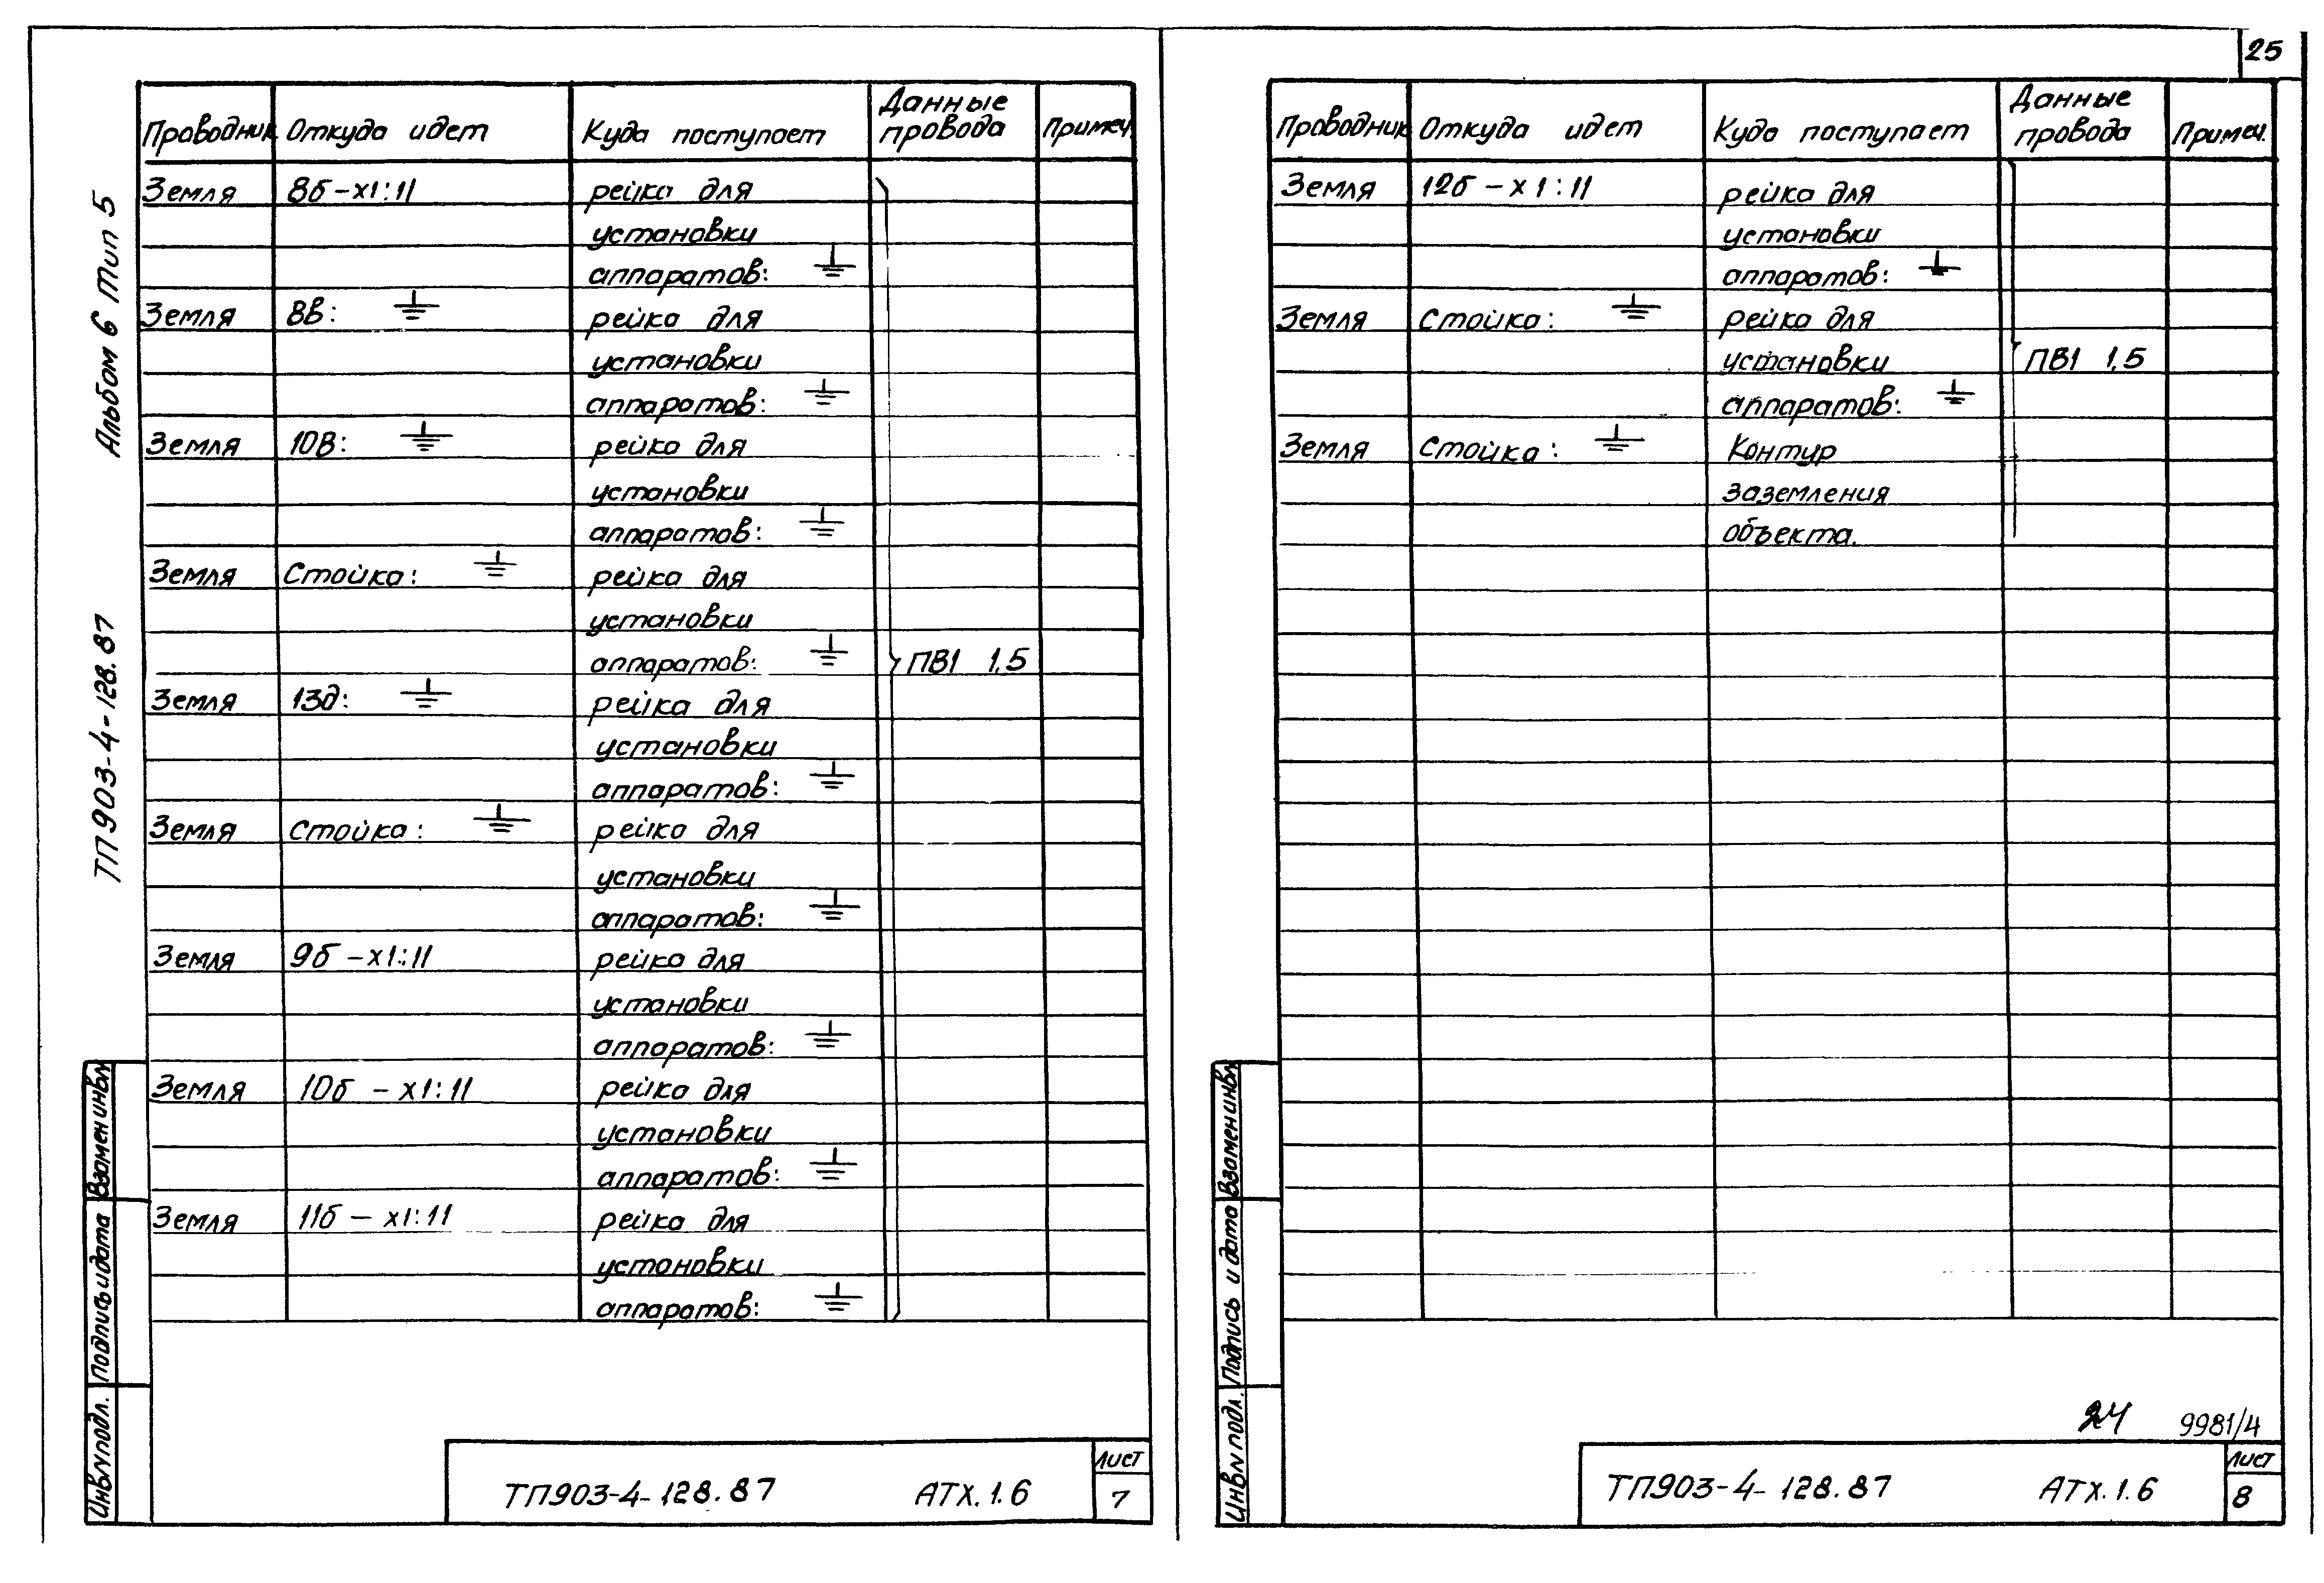 25
Альбом 6 Тип 5
ТП903-4-128.87
Проводник Откуда идет Куда поступает Данные провода Примеч.
Земля 8б-х1:11 рейка для
установки
аппаратов: ⏚
Земля 8В: ⏚ рейка для
установки
аппаратов: ⏚
Земля 10В: ⏚ рейка для
установки
аппаратов: ⏚
Земля Стойка: ⏚ рейка для
установки
аппаратов: ⏚ ПВ1 1,5
Земля 13д: ⏚ рейка для
установки
аппаратов: ⏚
Земля Стойка: ⏚ рейка для
установки
аппаратов: ⏚
Земля 9б-х1:11 рейка для
установки
аппаратов: ⏚
Земля 10б - х1:11 рейка для
установки
аппаратов: ⏚
Земля 11б - х1:11 рейка для
установки
аппаратов: ⏚
Взамен инв№
Подпись и дата
Инв№ подл.
ТП903-4-128.87 АТХ.1.6 Лист
7
Проводник Откуда идет Куда поступает Данные провода Примеч.
Земля 12б - х1:11 рейка для
установки
аппаратов: ⏚
Земля Стойка: ⏚ рейка для
установки ПВ1 1,5
аппаратов: ⏚
Земля Стойка: ⏚ Контур
заземления
объекта.
Взамен инв№
Подпись и дата
Инв№ подл.
24 9981/4
ТП903-4-128.87 АТХ.1.6 Лист
8